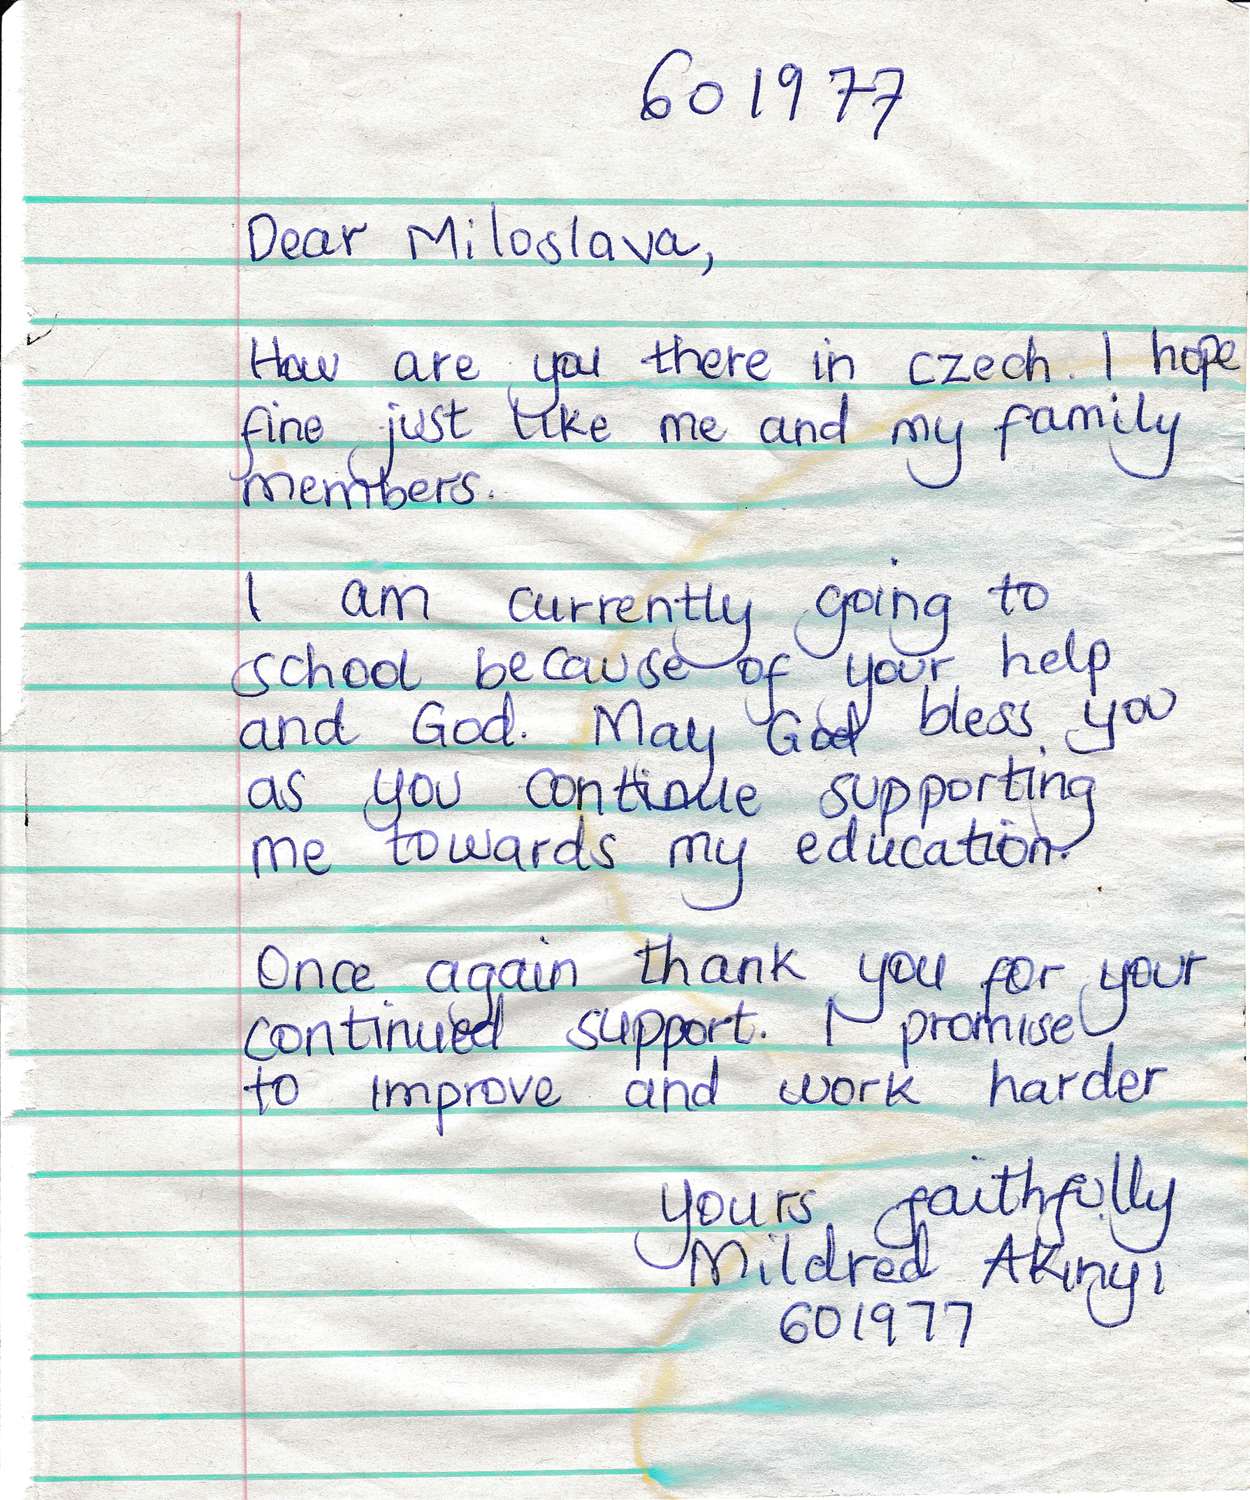 601977
Dear Miloslava,
How are you there in czech. I hope
fine just like me and my family
members.
I am currently going to
school because of your help
and God. May God bless you
as you continue supporting
me towards my education.
Once again thank you for your
continued support. I promise
to improve and work harder
yours faithfully
Mildred Akinyi
601977